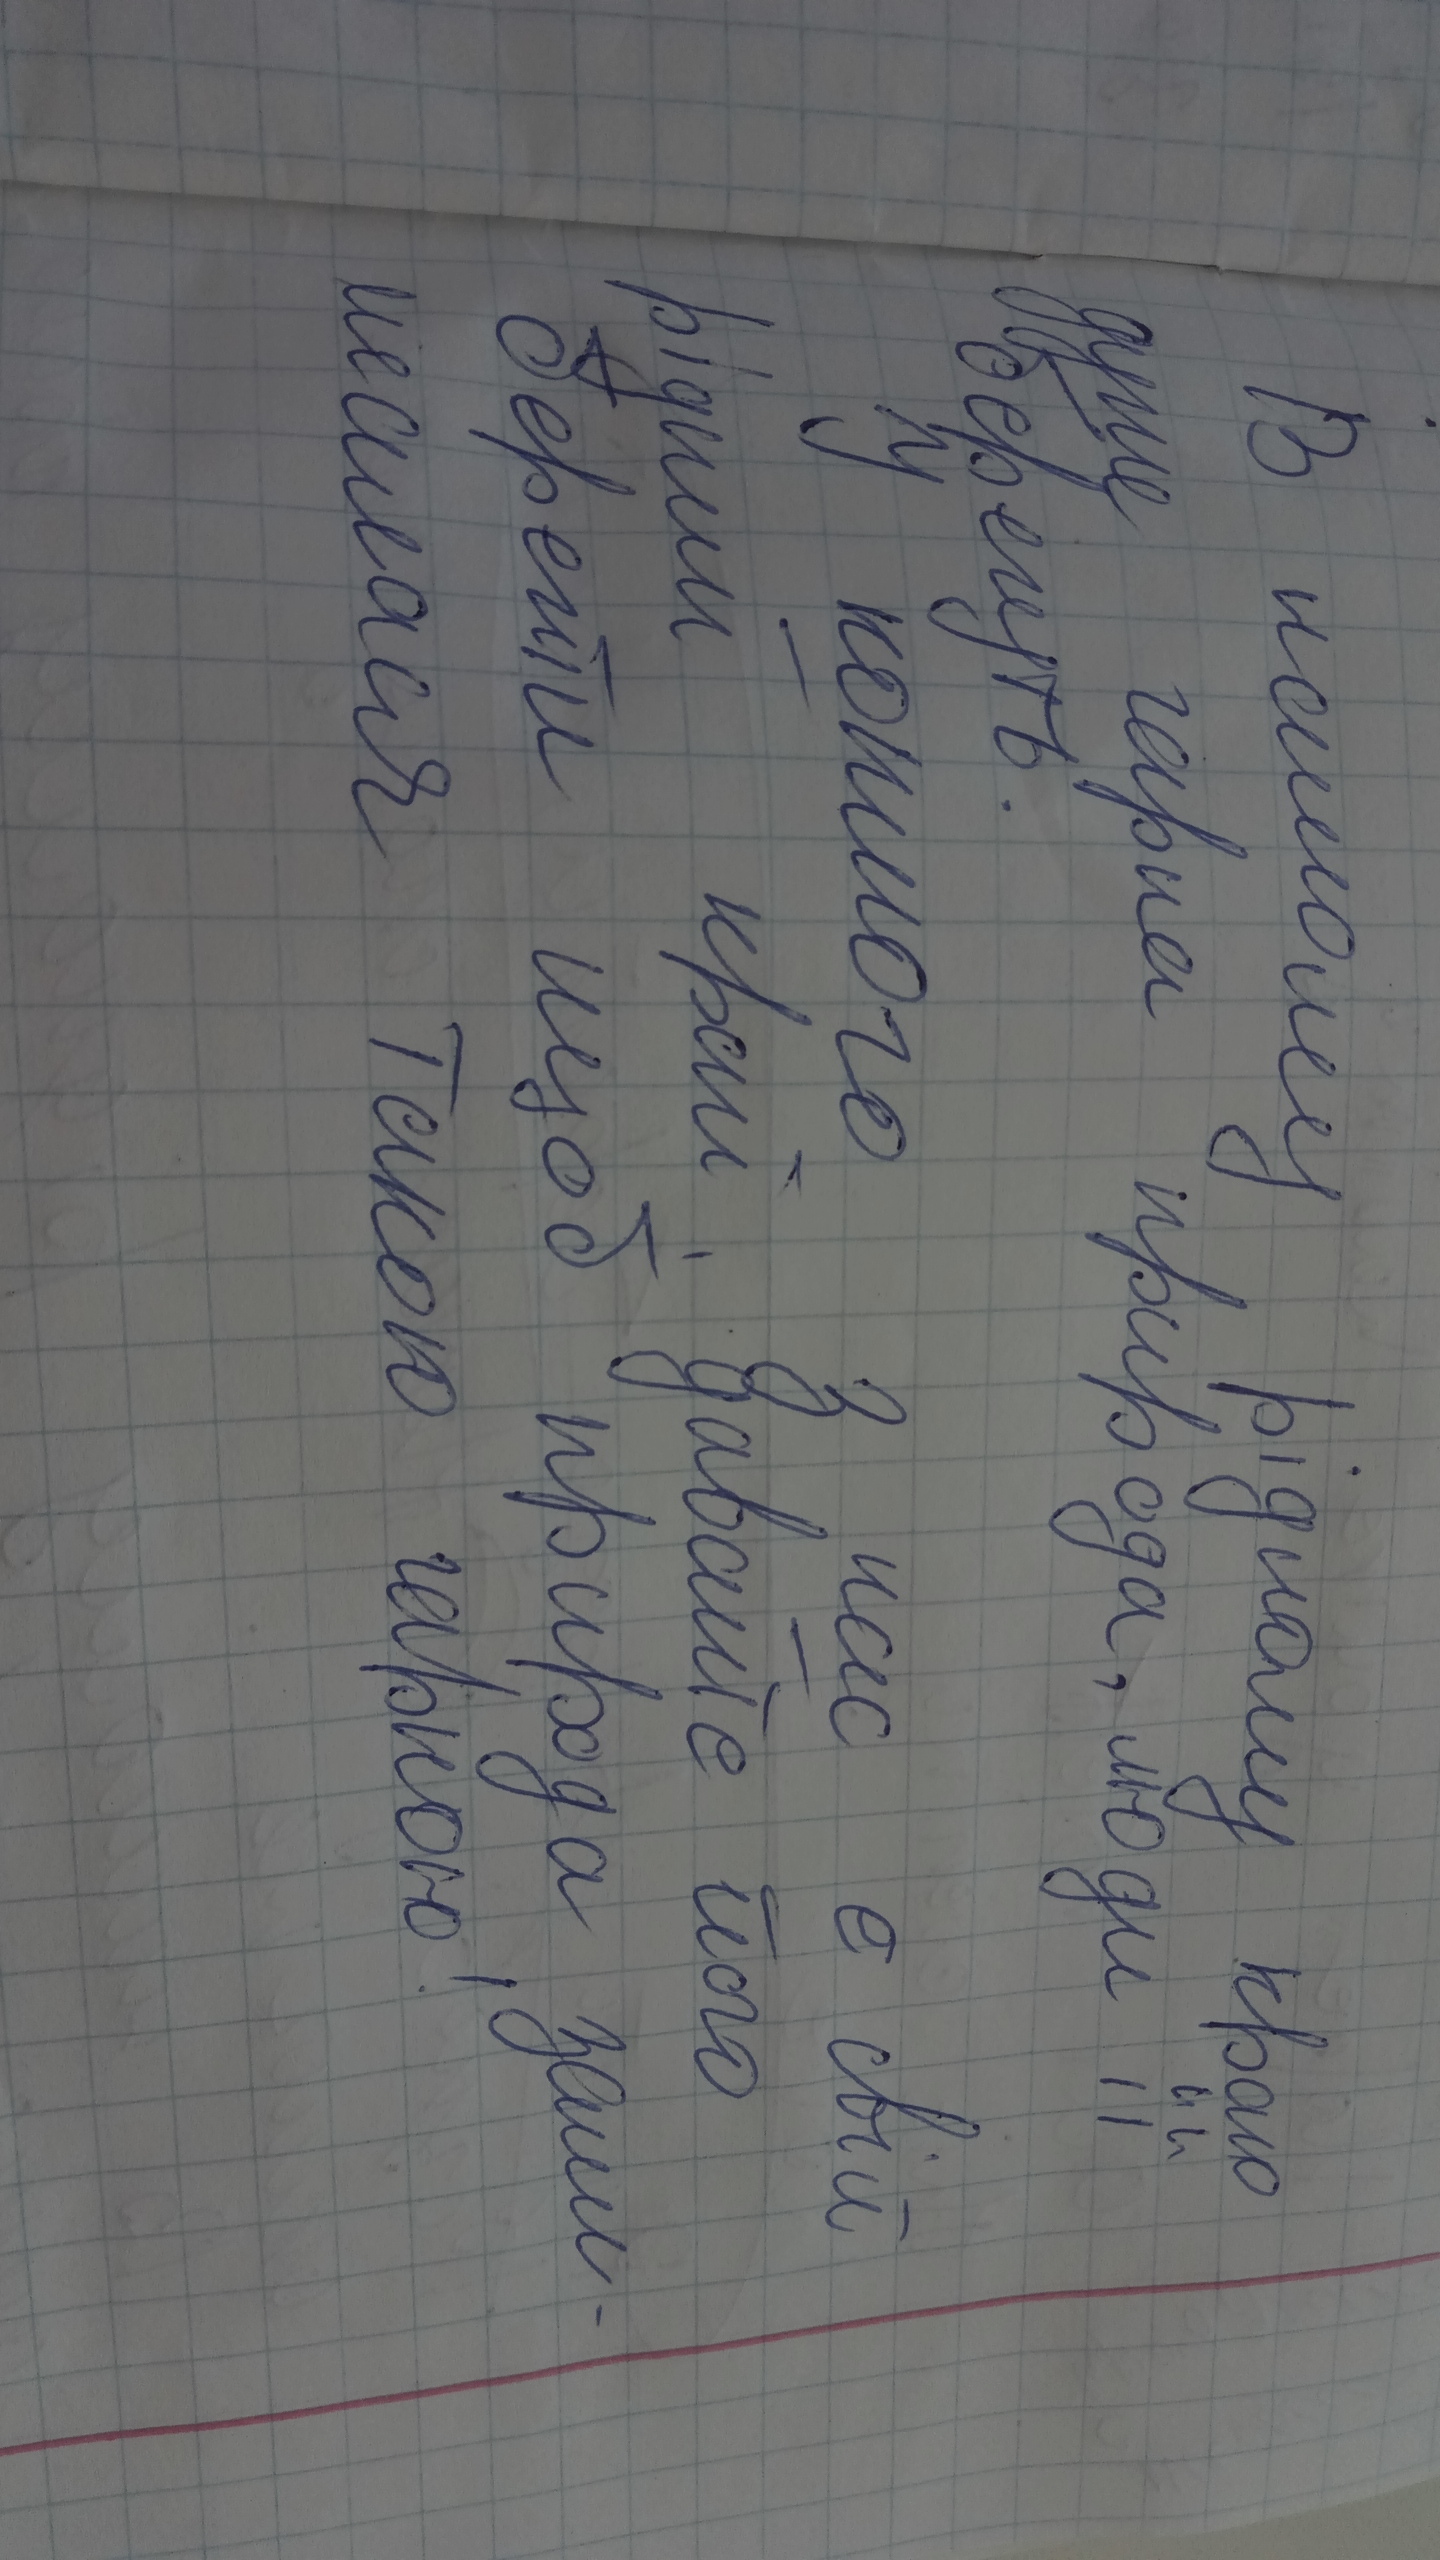 В нашому рідному краю
дуже гарна природа, люди її
бережуть.
У кожного з нас є свій
рідний край, давайте його
берегти щоб природа зали-
шалася такою гарною!